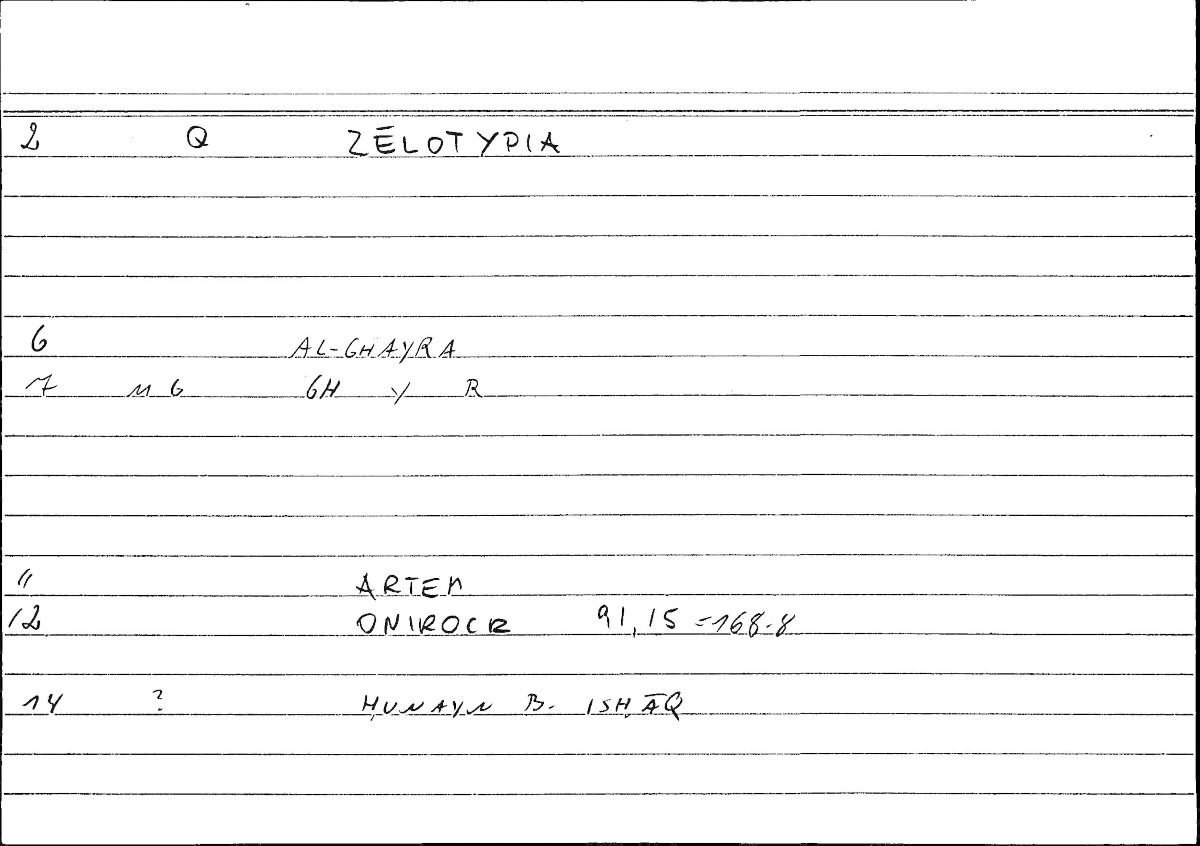 2 Q ZĒLOTYPIA
6 AL-GHAYRA
7 M G GH Y R
11 ARTEM
12 ONIROCR 91,15 =168.8
14 ? ḤUNAYN B. ISḤĀQ